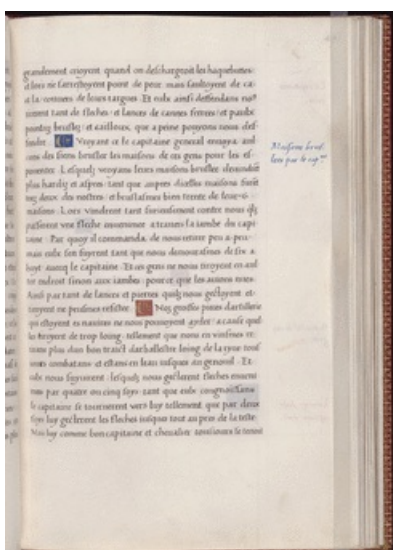 grandement cryoyent quand on deschargeoit les hacquebutes:
et lors ne sarrestoyent point de peur mais saultoyent de ca
et la couvers de leurs targues. Et eulx ainsi deffendans nous
tirerent tant de fleches: et lances de cannes ferrees: et paulx
pointuz bruslez: et cailloux, que a peine pouvions nous def
fendre. Voyant ce le capitaine general envoya aul
cuns des siens brusler les maisons de ces gens pour les es
poventer. Lesquelz voyans leurs maisons brusler devindrent
plus hardiz et aspres: tant que aupres dicelles maisons furent
tuez deux des nostres: et bruslasmes bien trente de leurs
maisons. Lors vindrent tant furieusement contre nous quilz
passerent une fleche a travers la jambe du capi
taine. Par quoy il commanda de nous retirer peu a peu:
mais eulx sen fuyrent tant que nous demourasmes six a
huyt avecq le capitaine. Et ces gens ne nous tiroyent en aul
tre endroit sinon aux jambes: pource que les avions nues.
Ainsi par tant de lances et pierres quilz nous gectoyent et
tiroyent ne peusmes resister. Nos grosses pieces dartillerie
qui estoyent es navires ne nous pouvoyent ayder: a cause quel
les tiroyent de trop loing: tellement que nous en vinsmes re
tirans plus dun bon traict darbalestre loing de la ryve tous
jours combatans: et estans en leau jusques au genouil. Et
eulx nous suyvirent: lesquelz nous gecterent fleches ensemble
une par quatre ou cinq foys: tant que eulx congnoissans
le capitaine se tournerent vers luy tellement que par deux
foys luy gecterent les fleches jusques tout au pres de la teste.
Mais luy comme bon capitaine et chevalier tousjours se tenoit
Maisons brus
lees par le cap.ne